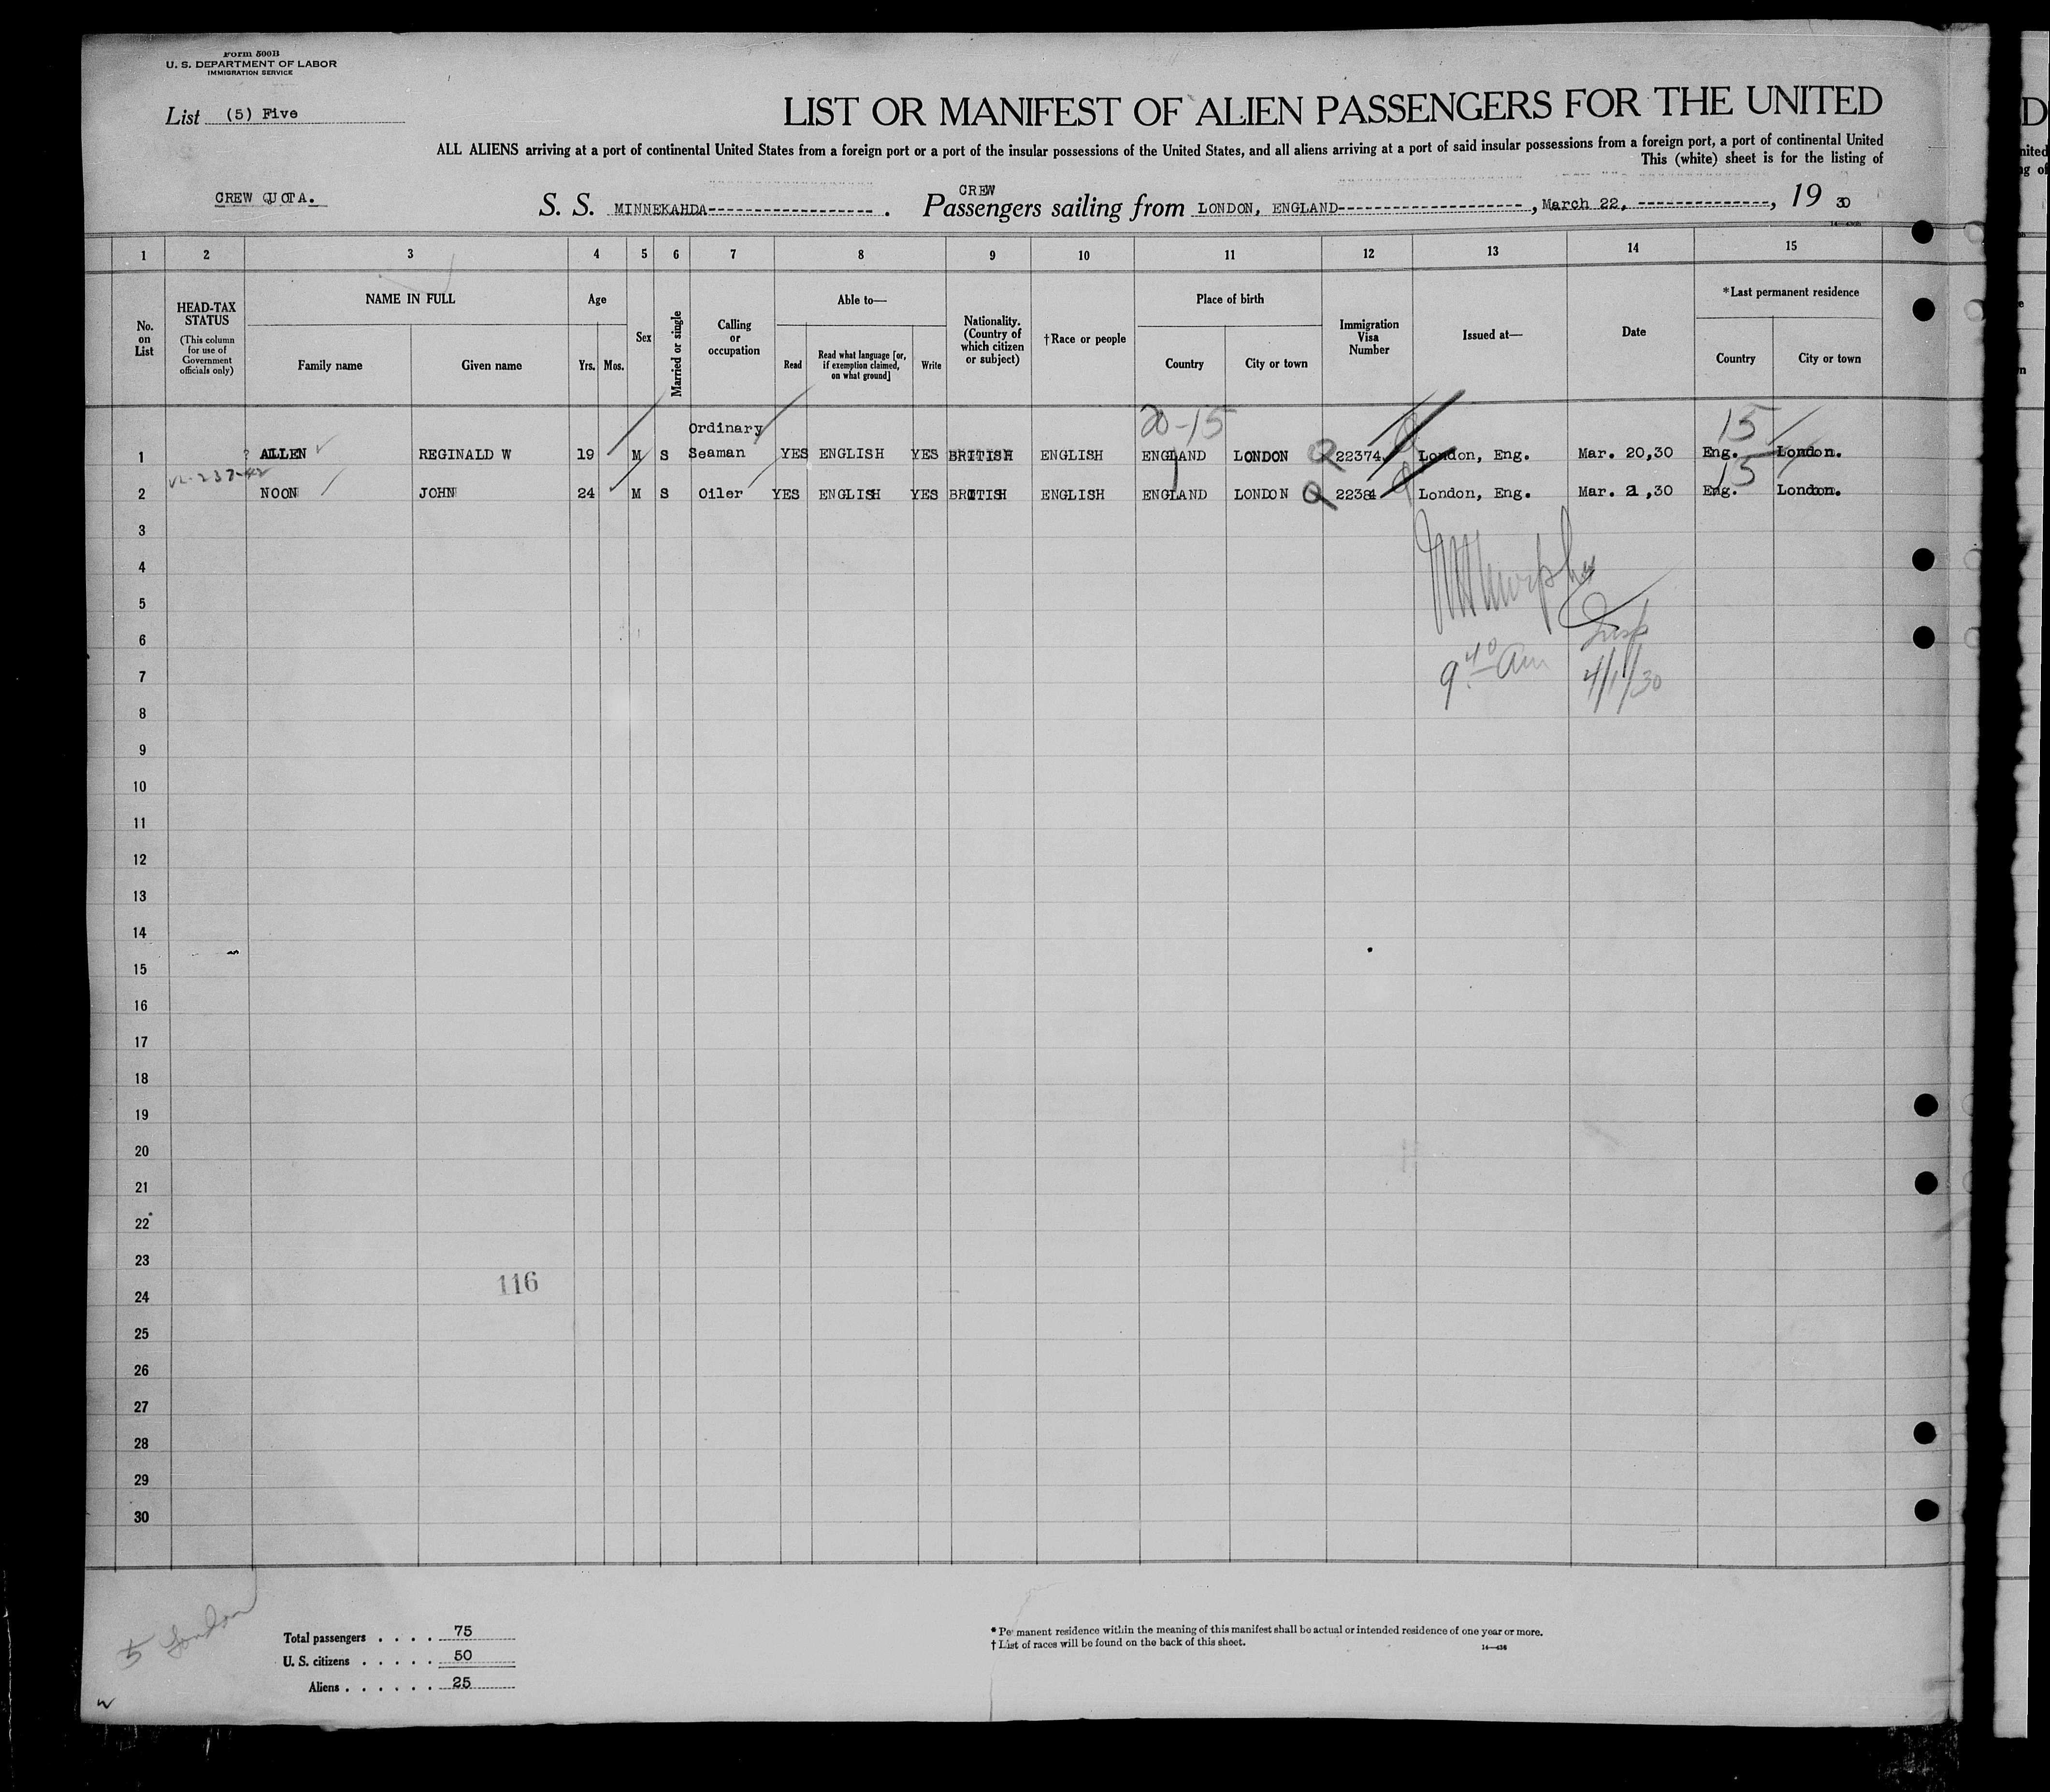 Form 500B
U. S. DEPARTMENT OF LABOR
IMMIGRATION SERVICE
List (5) Five
LIST OR MANIFEST OF ALIEN PASSENGERS FOR THE UNITED
ALL ALIENS arriving at a port of continental United States from a foreign port or a port of the insular possessions of the United States, and all aliens arriving at a port of said insular possessions from a foreign port, a port of continental United
This (white) sheet is for the listing of
CREW QUOTA.
S. S. MINNEKAHDA . Passengers sailing from LONDON, ENGLAND , March 22, , 19 30
CREW
1 2 3 4 5 6 7 8 9 10 11 12 13 14 15
No. on List
HEAD-TAX STATUS
(This column for use of Government officials only)
NAME IN FULL
Family name
Given name
Age
Yrs. Mos.
Sex
Married or single
Calling or occupation
Able to—
Read
Read what language [or, if exemption claimed, on what ground]
Write
Nationality. (Country of which citizen or subject)
†Race or people
Place of birth
Country
City or town
Immigration Visa Number
Issued at—
Date
*Last permanent residence
Country
City or town
20-15
15
1 ALLEN REGINALD W 19 M S Ordinary Seaman YES ENGLISH YES BRITISH ENGLISH ENGLAND LONDON Q 22374 London, Eng. Mar. 20,30 Eng. London.
15
2 NOON JOHN 24 M S Oiler YES ENGLISH YES BRITISH ENGLISH ENGLAND LONDON Q 2238 London, Eng. Mar. 21,30 Eng. London.
3
4
5
6
7
8
9
10
11
12
13
14
15
16
17
18
19
20
21
22
23
24
25
26
27
28
29
30
Murphy
Insp
9 40 am 4/1/30
116
5 London
Total passengers . . . . 75
U. S. citizens . . . . . 50
Aliens . . . . . . 25
* Permanent residence within the meaning of this manifest shall be actual or intended residence of one year or more.
† List of races will be found on the back of this sheet.